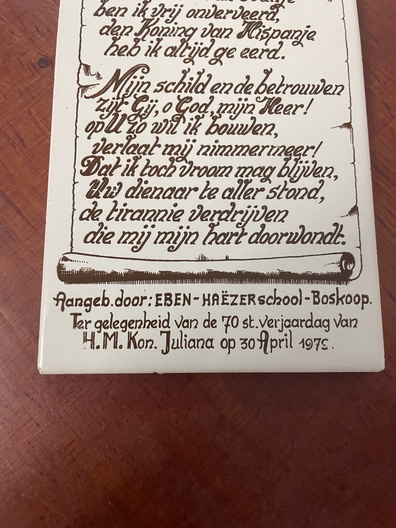 ben ik vrij onverveerd,
den Koning van Hispanje
heb ik altijd ge eerd.
Mijn schild en de betrouwen
zijt Gij, o God, mijn Heer!
op U zo wil ik bouwen,
verlaat mij nimmermeer!
Dat ik toch vroom mag blijven,
Uw dienaar te aller stond,
de tirannie verdrijven
die mij mijn hart doorwondt.
Aangeb. door: EBEN-HAËZER school - Boskoop.
Ter gelegenheid van de 70 st. verjaardag van
H. M. Kon. Juliana op 30 April 1979.